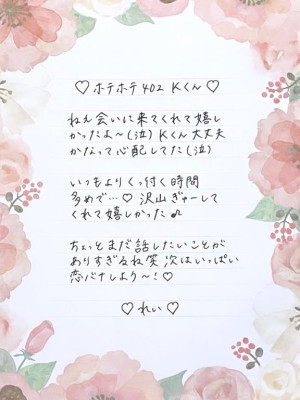 ♡ ホテホテ402 Kくん ♡
ねぇ会いに来てくれて嬉し
かったよ〜(泣) Kくん大丈夫
かなって心配してた(泣)
いつもよりくっ付く時間
多めで…♡ 沢山ぎゅーして
くれて嬉しかった♪
ちょっとまだ話したいことが
ありすぎるね笑 次はいっぱい
恋バナしよう〜!♡
♡ れい ♡